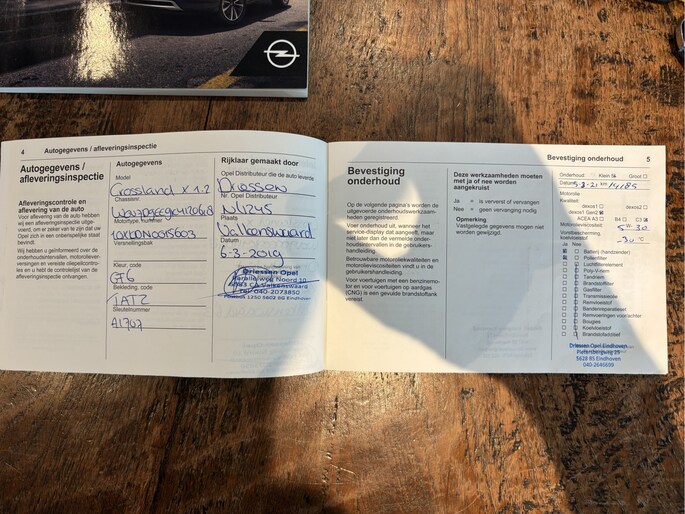 4 Autogegevens / afleveringsinspectie
Autogegevens /
afleveringsinspectie
Afleveringscontrole en
aflevering van de auto
Voor aflevering van de auto hebben
wij een afleveringsinspectie uitge-
voerd, om er zeker van te zijn dat uw
Opel zich in een onberispelijke staat
bevindt.
Wij hebben u geïnformeerd over de
onderhoudsintervallen, motorolever-
versingen en vereiste oliepeilcontro-
les en u hebt de controlelijst van de
afleveringsinspectie ontvangen.
Autogegevens
Model
Crossland X 1.2
Chassisnr.
Motortype, nummer
Versnellingsbak
Kleur, code
G76
Bekleding, code
TAT2
Sleutelnummer
A1707
Rijklaar gemaakt door
Opel Distributeur die de auto leverde
Driessen
Nr. Opel Distributeur
NN1245
Plaats
Valkenswaard
Datum
6-3-2019
Driessen Opel
Valkenswaard
Tel: 040-2073850
Postbus 1250 5602 BG Eindhoven
Bevestiging onderhoud 5
Bevestiging
onderhoud
Op de volgende pagina's worden de
uitgevoerde onderhoudswerkzaam-
heden geregistreerd.
Voer onderhoud uit, wanneer het
service-display dat aangeeft, maar
niet later dan de vermelde onder-
houdsintervallen in de gebruikers-
handleiding.
Betrouwbare motoroliekwaliteiten en
motorolieviscositeiten vindt u in de
gebruikershandleiding.
Voor voertuigen met een benzinemo-
tor en voor voertuigen op aardgas
(CNG) is een gevulde brandstoftank
vereist.
Deze werkzaamheden moeten
met ja of nee worden
aangekruist
Ja = is ververst of vervangen
Nee = geen vervanging nodig
Opmerking
Vastgelegde gegevens mogen niet
worden gewijzigd.
Onderhoud: Klein Groot
Datum km 14185
Motorolie
Kwaliteit:
dexos1
dexos1 Gen2 dexos2
ACEA A3 B4 C3
Motorolieviscositeit: 5 W 30
Vorstbescherming
koelvloeistof -30 °C
Ja Nee
Batterij (handzender)
Pollenfilter
Luchtfilterelement
Poly-V-riem
Tandriem
Brandstoffilter
Gasfilter
Transmissieolie
Remvloeistof
Bandenreparatieset
Remvoeringen voor/achter
Bougies
Koelvloeistof
Brandstofadditief
Driessen Opel Eindhoven
Piefersbergweg 25
5628 BS Eindhoven
040-2640699